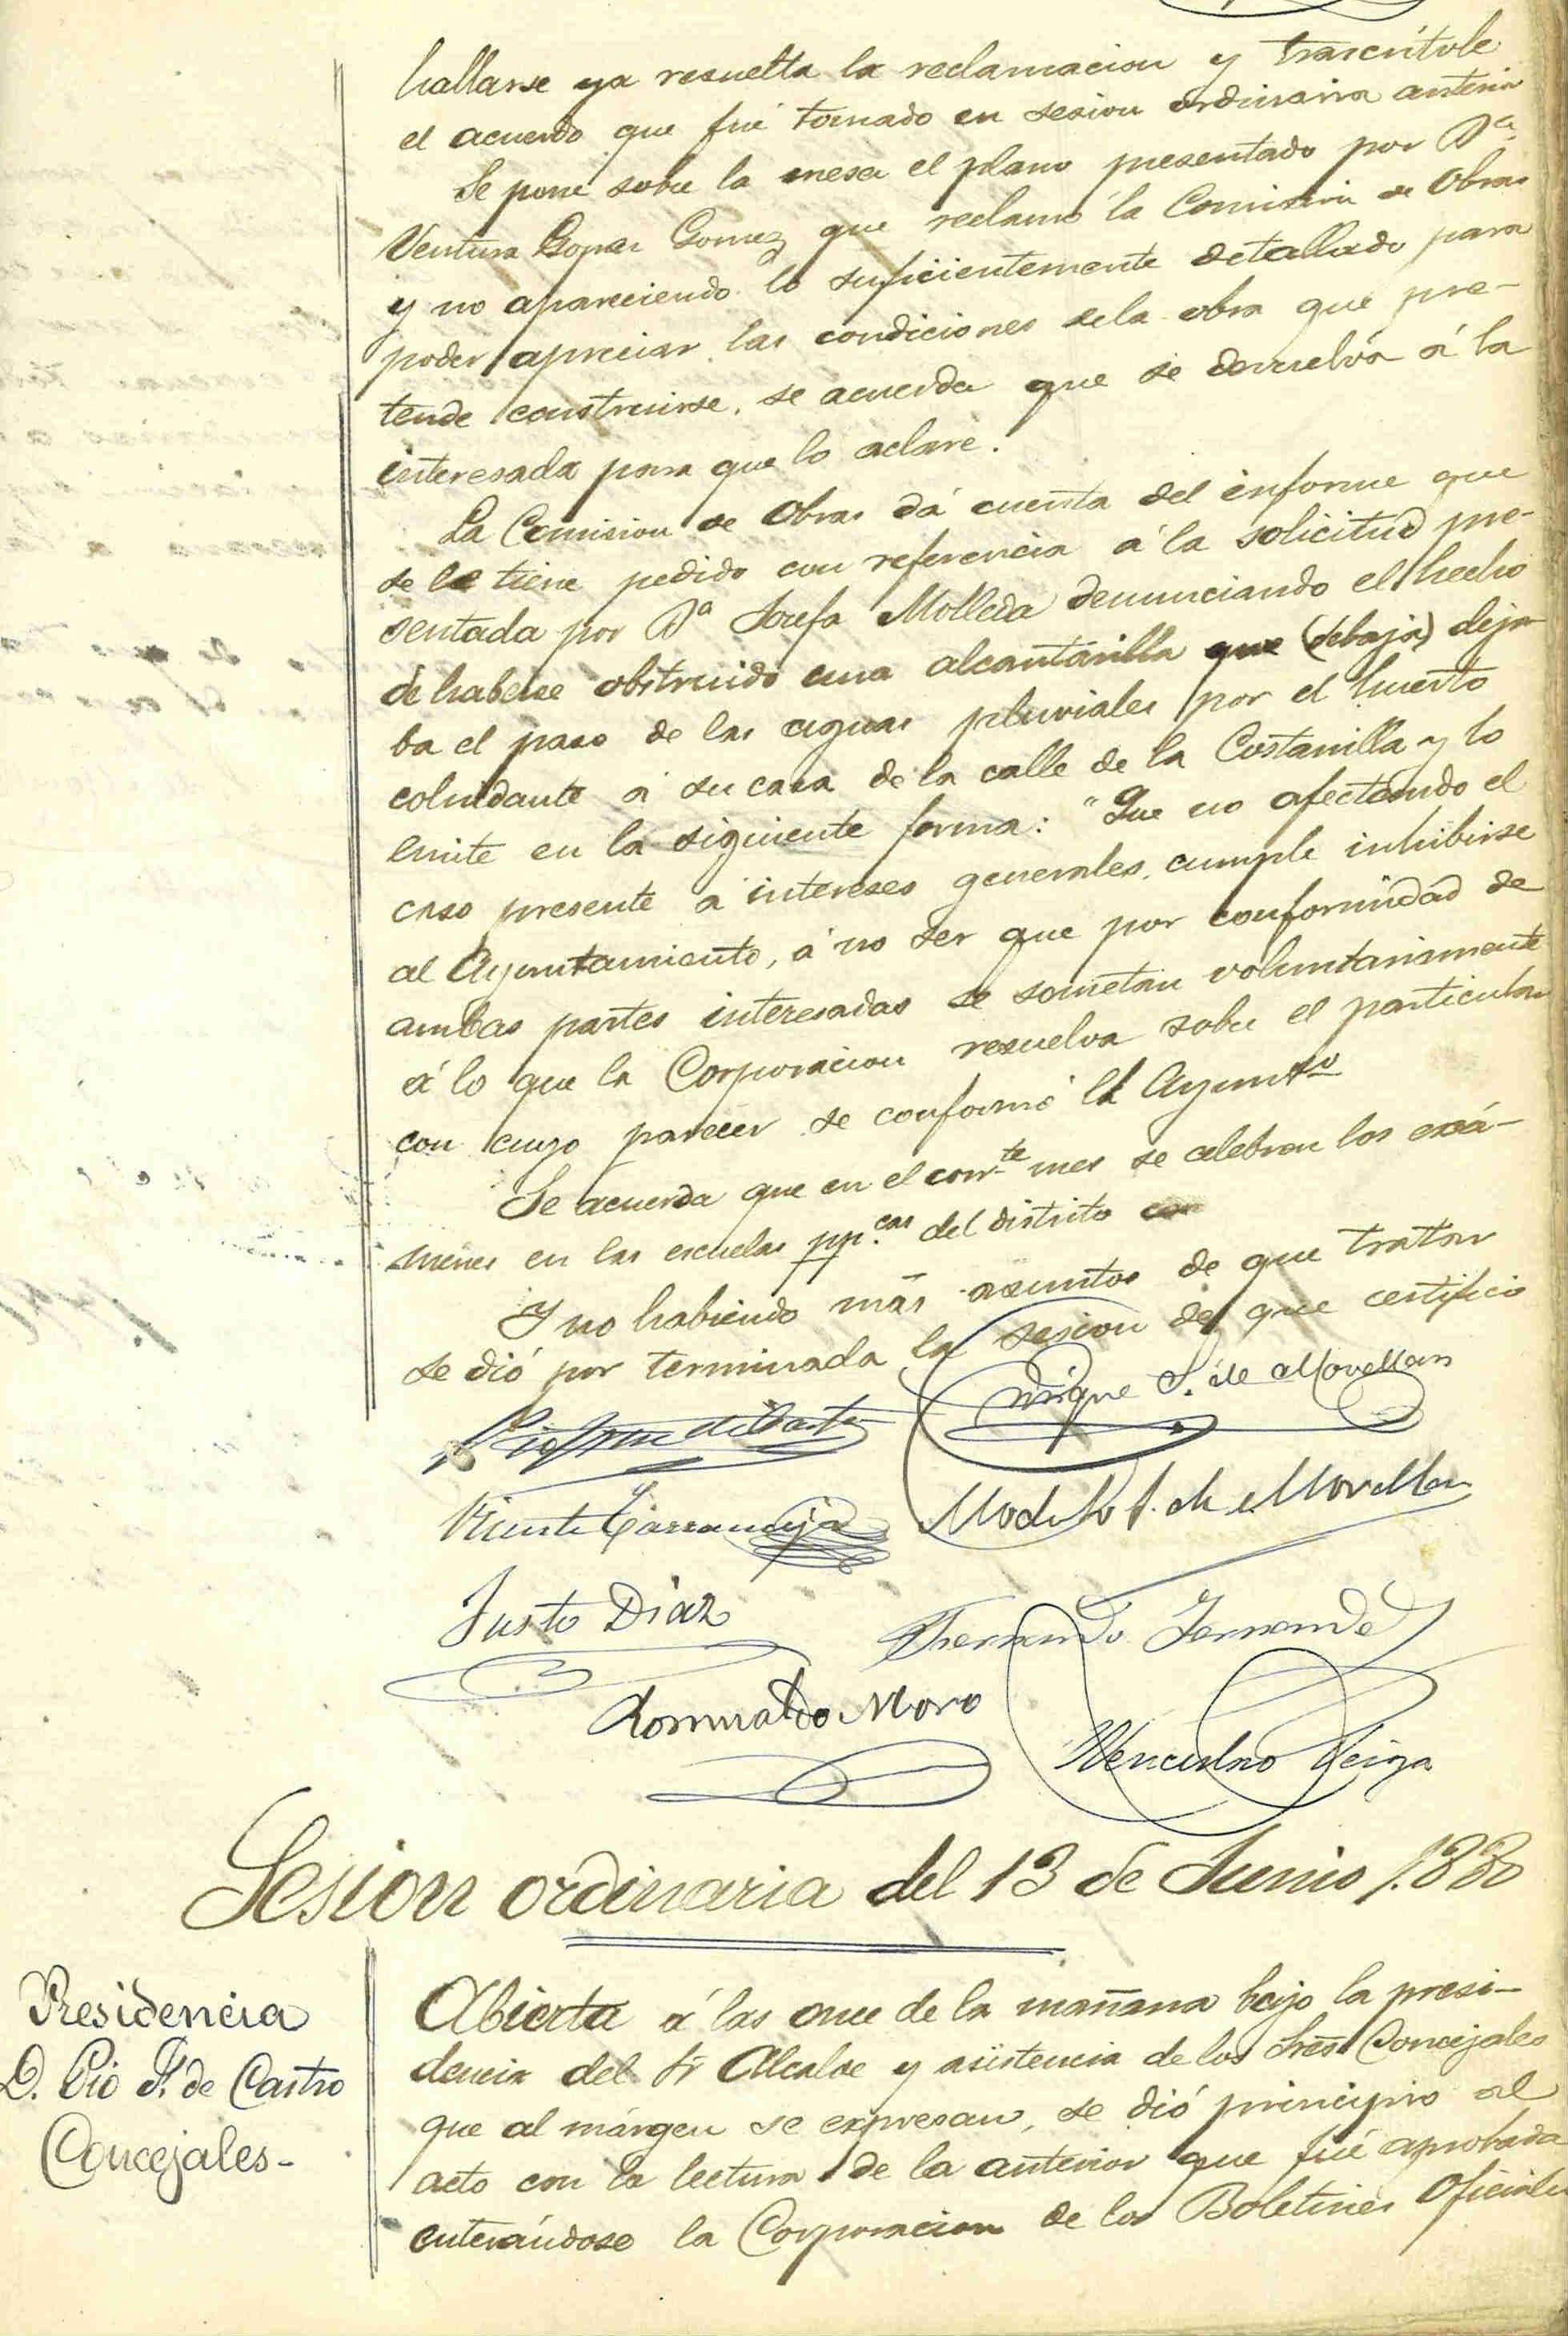 hallarse ya resuelta la reclamacion y trascríbole
el acuerdo que fué tomado en sesion ordinaria anterior
Se pone sobre la mesa el plano presentado por Dª
Ventura Gomez que reclamó la Comision de Obras
y no apareciendo lo suficientemente detallado para
poder apreciar las condiciones dela obra que pre-
tende construirse, se acuerda que se devuelva á la
interesada para que lo aclare.
La Comision de Obras dá cuenta del informe que
se le tiene pedido con referencia á la solicitud pre-
sentada por Dª Josefa Molleda denunciando el hecho
de haberse obstruido una alcantarilla que (debaja) deja-
ba el paso de las aguas pluviales por el huerto
colindante á su casa de la calle de la Costanilla y lo
emite en la siguiente forma: "Que no afectando el
caso presente á intereses generales, cumple inhibirse
al Ayuntamiento, á no ser que por conformidad de
ambas partes interesadas se sometan voluntariamente
á lo que la Corporacion resuelva sobre el particular
con cuyo parecer se conformó el Ayuntº
Se acuerda que en el corr.te mes se celebren los exá-
menes en las escuelas pp.cas del distrito
Y no habiendo más asuntos de que tratar
se dió por terminada la sesion de que certifico
Enrique S. de Movellan
Vicente Carrandeja
Modesto S. de Movellan
Justo Diaz
Fernando Fernandez
Romualdo Moro
Wenceslao Veiga
Sesion ordinaria del 13 de Junio 1.880
Presidencia
D. Pio F. de Castro
Concejales-
Abierta á las once de la mañana bajo la presi-
dencia del Sr Alcalde y asistencia de los Sres Concejales
que al márgen se expresan, se dió principio al
acto con la lectura de la anterior que fué aprobada
enterándose la Corporacion de los Boletines Oficiales